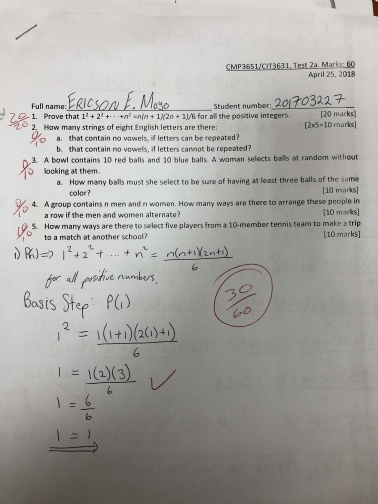 CMP3651/CIT3631, Test 2a. Marks: 60
April 25, 2018
Full name: ERICSON E. Moyo Student number: 201703227
20/20 1. Prove that 1² + 2² + ··· +n² =n(n + 1)(2n + 1)/6 for all the positive integers. [20 marks]
2. How many strings of eight English letters are there: [2x5=10 marks]
a. that contain no vowels, if letters can be repeated?
b. that contain no vowels, if letters cannot be repeated?
3. A bowl contains 10 red balls and 10 blue balls. A woman selects balls at random without
looking at them.
a. How many balls must she select to be sure of having at least three balls of the same
color? [10 marks]
4. A group contains n men and n women. How many ways are there to arrange these people in
a row if the men and women alternate? [10 marks]
5. How many ways are there to select five players from a 10-member tennis team to make a trip
to a match at another school? [10 marks]
1) P(n) => 1² + 2² + ... + n² = n(n+1)(2n+1)
6
for all positive numbers.
30
60
Basis Step: P(1)
1² = 1(1+1)(2(1)+1)
6
1 = 1(2)(3)
6
1 = 6
6
1 = 1